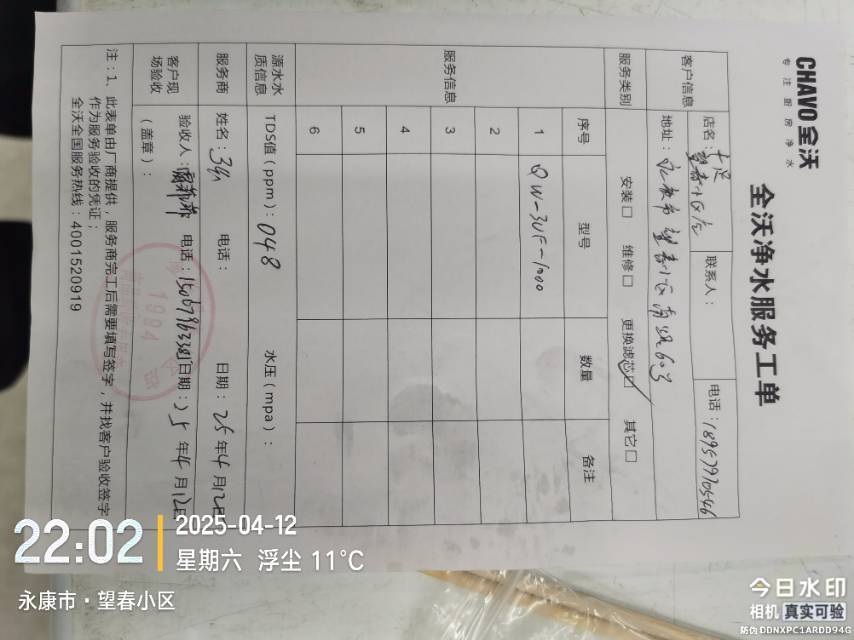 CHAVO 全沃
专注厨房净水
全沃净水服务工单
客户信息
店名：
望春小区店
联系人：
电话：18957970546
地址：永康市望春小区南
服务类别
安装□ 维修□ 更换滤芯☑ 其它□
服务信息
序号 型号 数量 备注
1 QW-3UF-1000
2
3
4
5
6
源水水质信息
TDS值（ppm）：048
水压（mpa）：
服务商
姓名：
电话：
日期：25年4月12日
客户现场验收
验收人：
电话：
日期：25年4月12日
（盖章）：
1984
注：1、此表单由厂商提供，服务商完工后需要填写签字，并找客户验收签字
作为服务验收的凭证；
全沃全国服务热线：4001520919
22:02
2025-04-12
星期六 浮尘 11°C
永康市·望春小区
今日水印
相机 真实可验
防伪 DDNXPC1ARDD94G